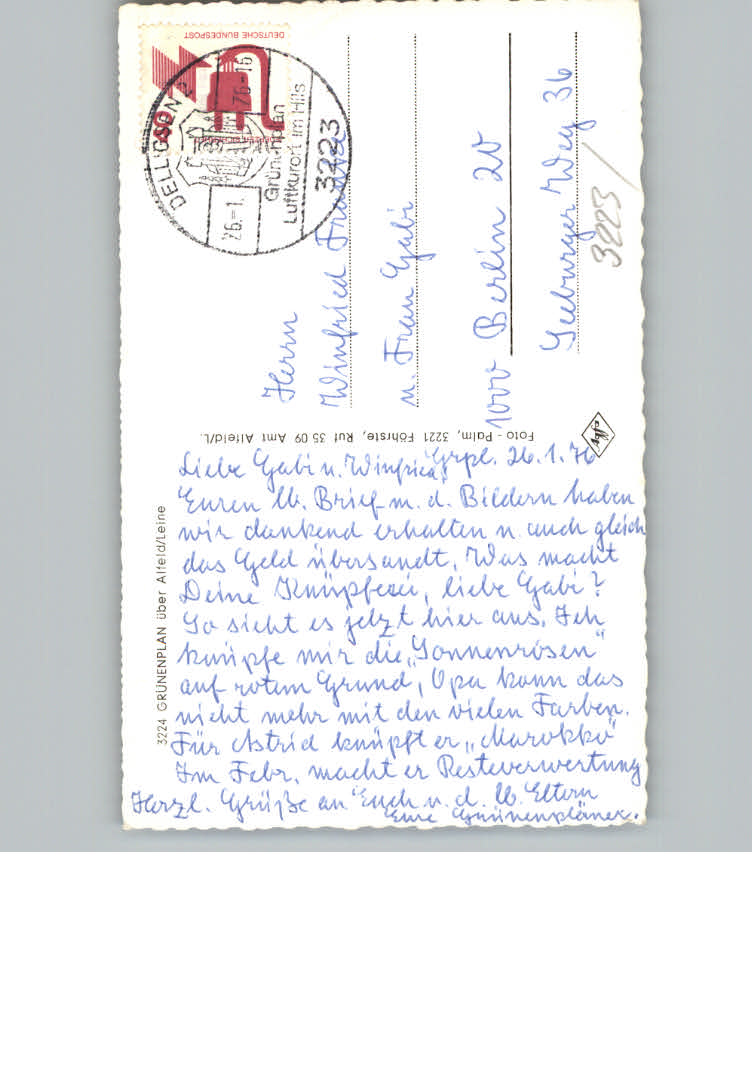 DEUTSCHE BUNDESPOST
DELLIGSEN 2
26.-1. 76-16
Grünenplan
Luftkurort im Hils
3223
Herrn
Winfried
u. Frau Gabi
1000 Berlin 20
Seeburger Weg 36
3223
Foto - Palm, 3221 Föhrste, Ruf 35 09 Amt Alfeld/L.
3224 GRÜNENPLAN über Alfeld/Leine
Grpl. 26.1.76
Liebe Gabi u. Winfried!
Euren lb. Brief m. d. Bildern haben
wir dankend erhalten u. auch gleich
das Geld übersandt. Was macht
Deine Knüpferei, liebe Gabi?
So sieht es jetzt hier aus. Ich
knüpfe mir die „Sonnenrosen"
auf rotem Grund, Opa kann das
nicht mehr mit den vielen Farben.
Für Astrid knüpft er „Marokko"
Im Febr. macht er Resteverwertung
Herzl. Grüße an Euch u. d. lb. Eltern
Eure Grünenpläner.